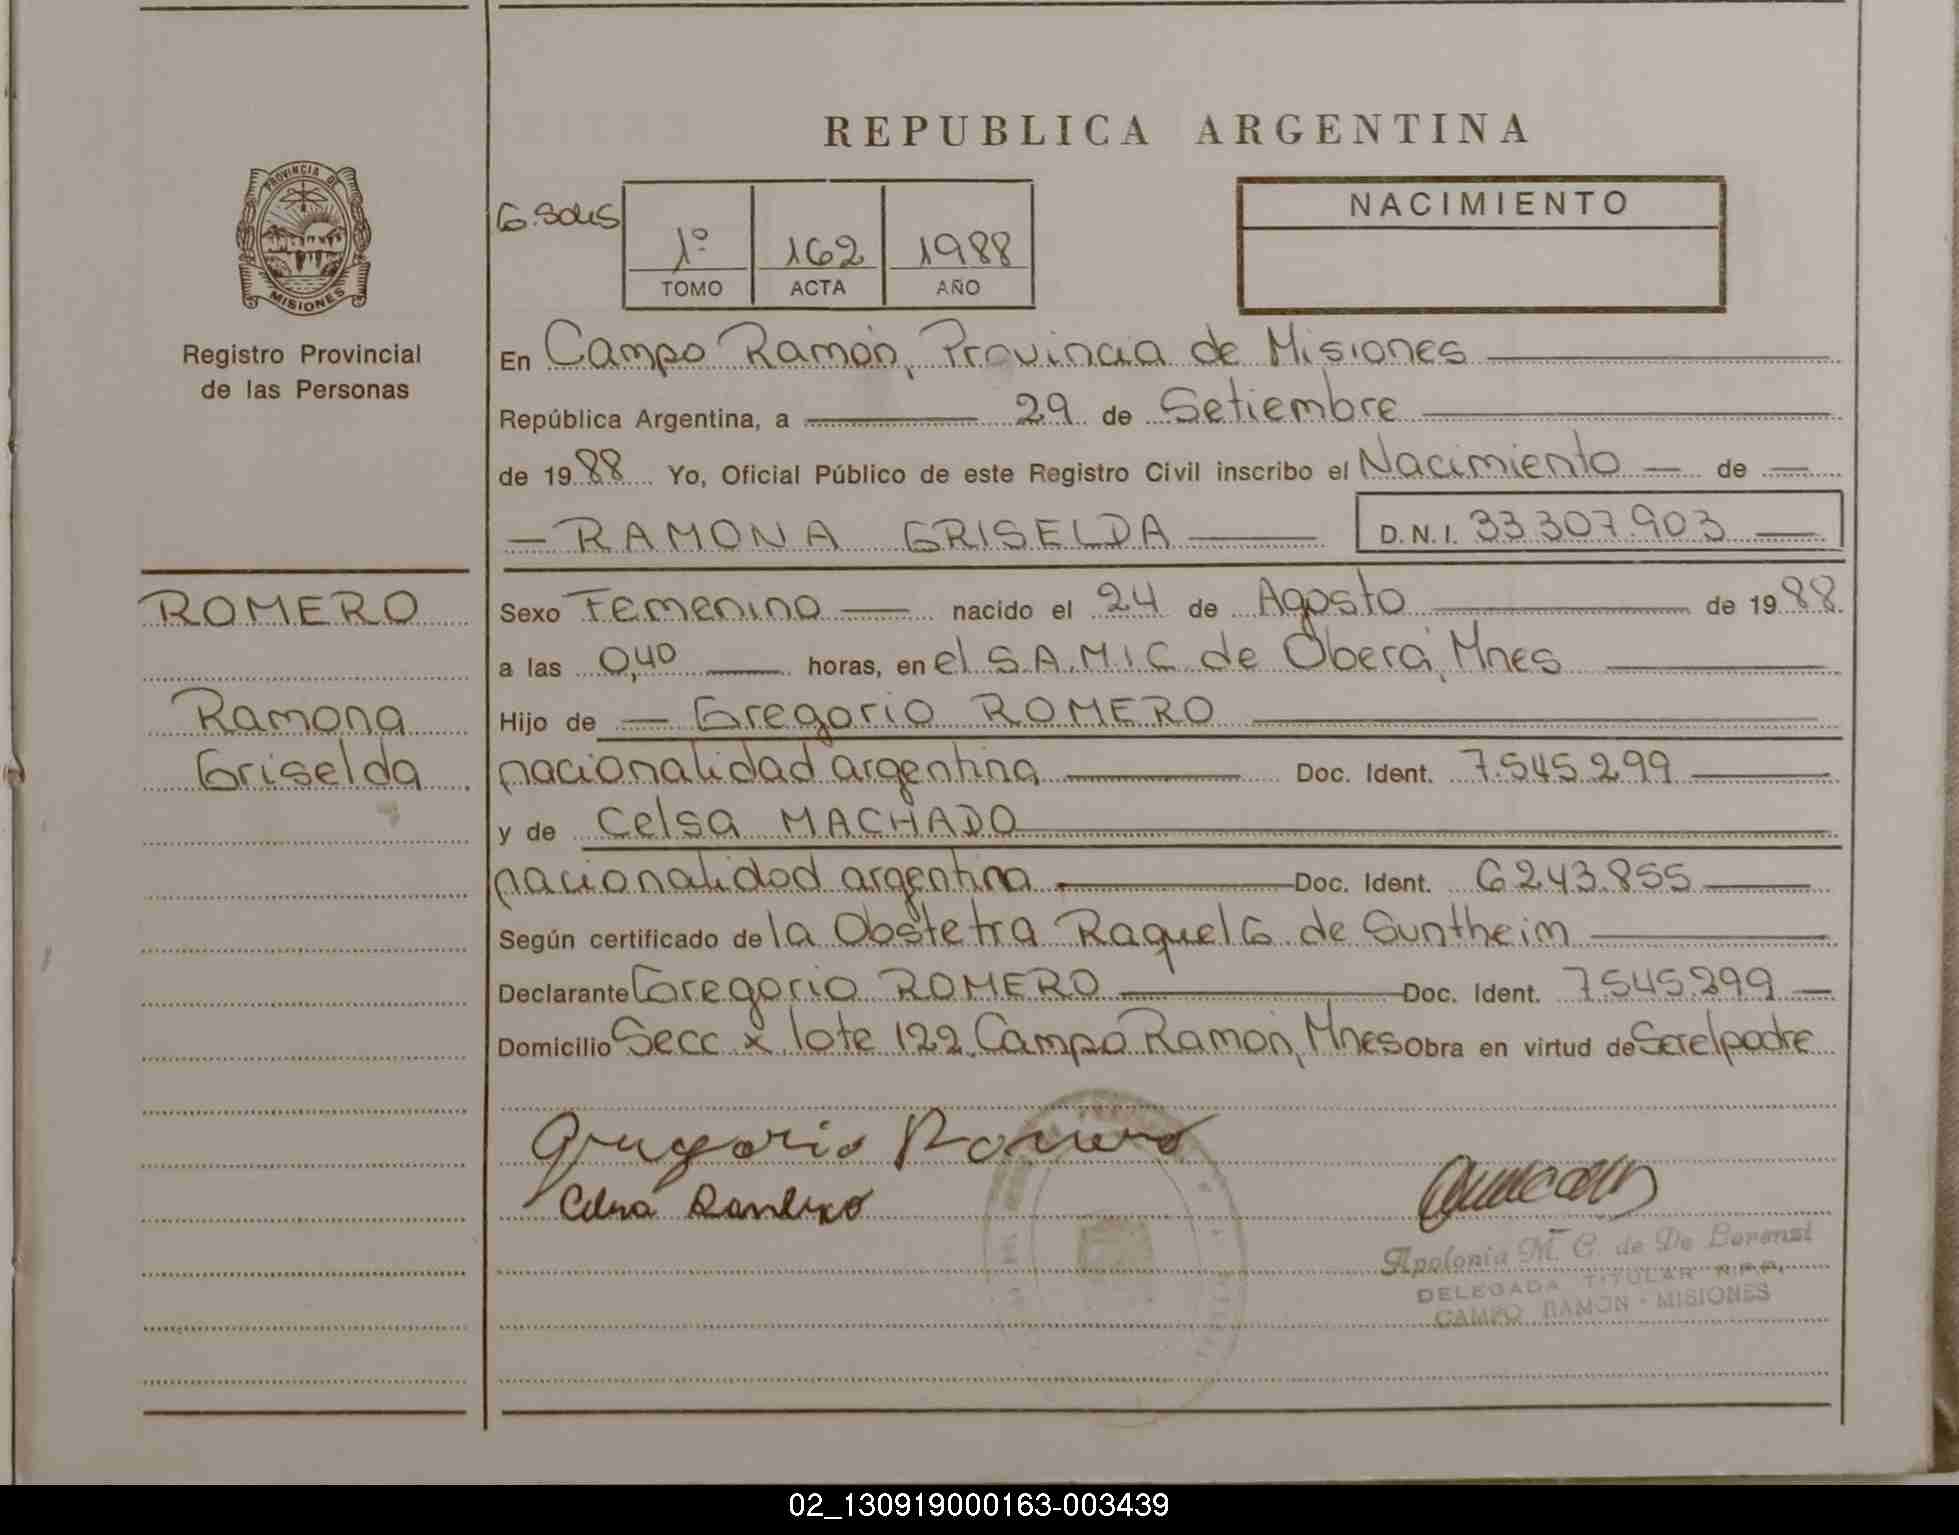 REPUBLICA ARGENTINA
PROVINCIA DE
MISIONES
Registro Provincial
de las Personas
G. Solis
1º 162 1988
TOMO ACTA AÑO
NACIMIENTO
En Campo Ramón, Provincia de Misiones
República Argentina, a 29 de Setiembre
de 1988 Yo, Oficial Público de este Registro Civil inscribo el Nacimiento de
RAMONA GRISELDA D.N.I. 33.307.903
ROMERO
Ramona
Griselda
Sexo Femenino nacido el 24 de Agosto de 1988
a las 0,40 horas, en el S.A.M.I.C de Oberá, Mnes
Hijo de Gregorio ROMERO
nacionalidad argentina Doc. Ident. 7.545.299
y de Celsa MACHADO
nacionalidad argentina Doc. Ident. 6.243.855
Según certificado de la Obstetra Raquel G de Suntheim
Declarante Gregorio ROMERO Doc. Ident. 7.545.299
Domicilio Secc x lote 122, Campo Ramón, Mnes Obra en virtud de Ser el padre
Gregorio Romero
Apolonia M. C. de De Lorenzi
DELEGADA TITULAR R.P.P.
CAMPO RAMON - MISIONES
02_130919000163-003439